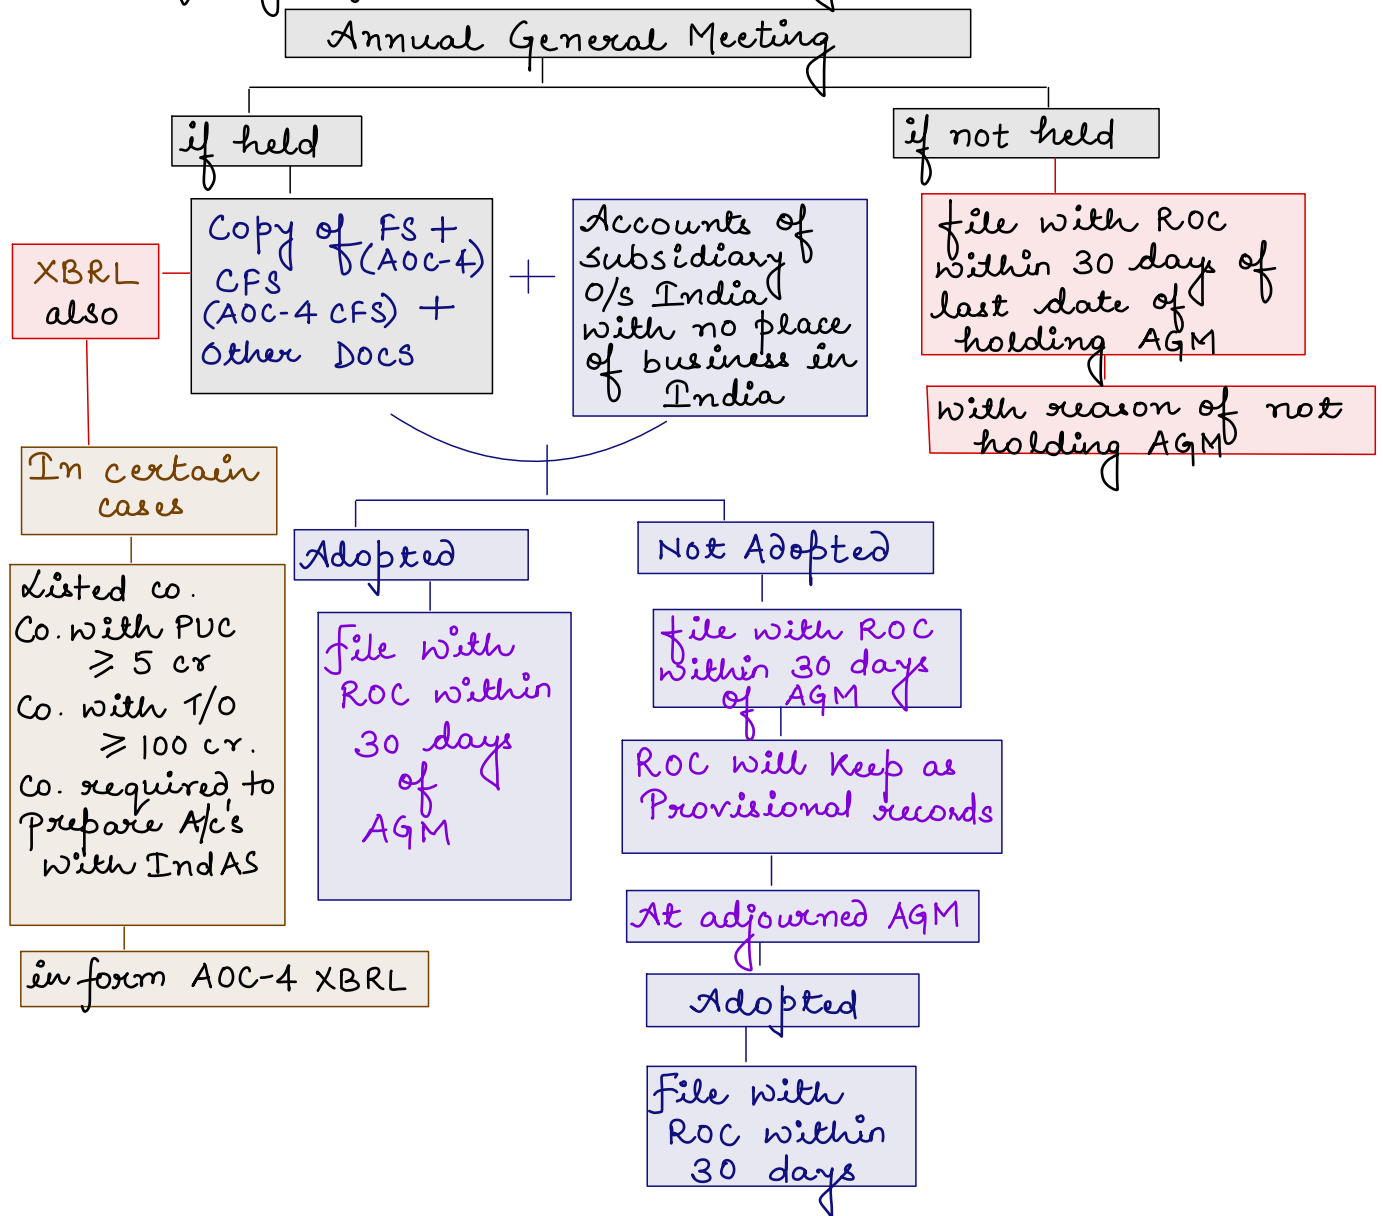 Annual General Meeting
if held
if not held
Copy of FS +
(AOC-4)
CFS
(AOC-4 CFS) +
Other DOCS
+
Accounts of
subsidiary
O/S India
with no place
of business in
India
file with ROC
within 30 days of
last date of
holding AGM
with reason of not
holding AGM
XBRL
also
In certain
cases
Listed co.
Co. with PUC
≥ 5 cr
Co. with T/O
≥ 100 cr.
Co. required to
Prepare A/c's
with IndAS
in form AOC-4 XBRL
Adopted
File with
ROC within
30 days
of
AGM
Not Adopted
file with ROC
within 30 days
of AGM
ROC will Keep as
Provisional records
At adjourned AGM
Adopted
File with
ROC within
30 days